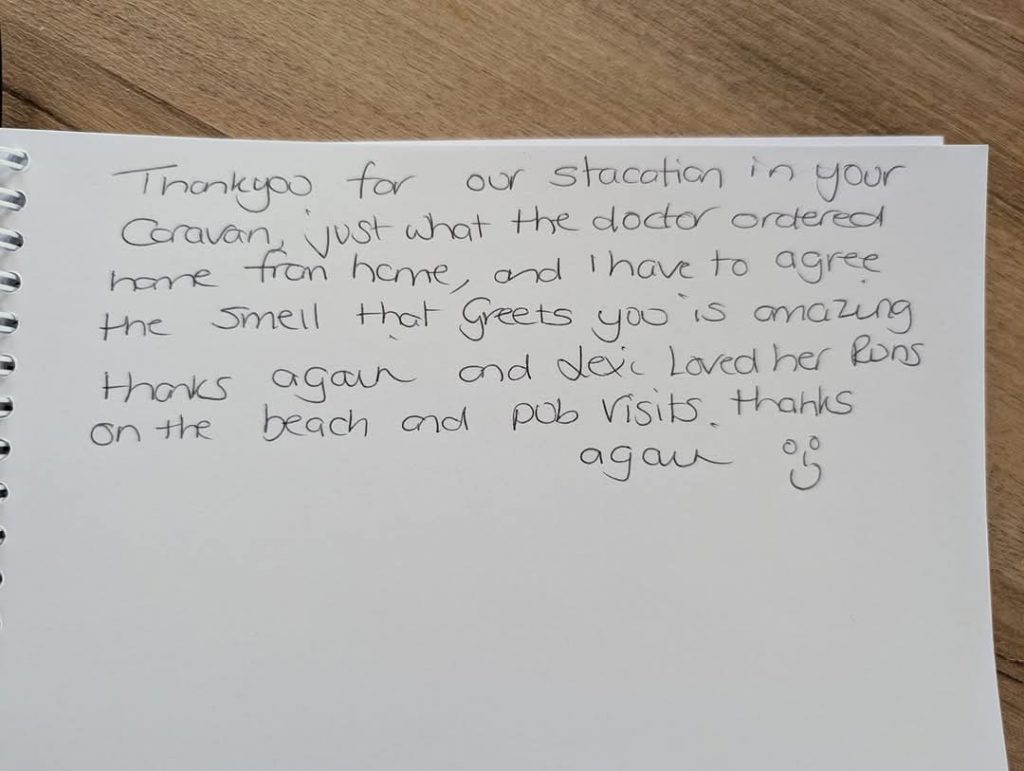 Thankyou for our stacation in your
Caravan, just what the doctor ordered
home from home, and I have to agree
the smell that Greets you is amazing
thanks again and Lexi Loved her Runs
on the beach and pub visits. thanks
again